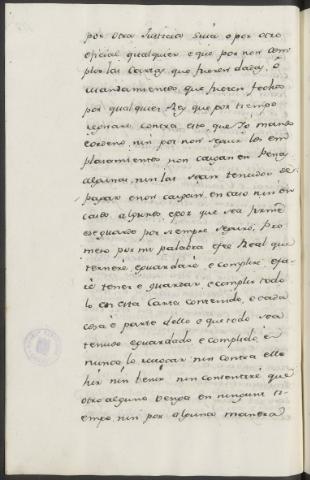 por otra Justicia suia o por otro
oficial qualquier e que por non com
plir las cartas que fueren dadas, ô
mandamientos que fueren fechos
por qualquier Rey que por tiempo
regnare contra esto que Yo mando
e ordeno, nin por non seguir los em
plazamientos non caygan en Pena
alguna, nin las sean tenudos de
pagar e non caygan en caso nin en
caso alguno, e por que sea firme
e seguardo por siempre seguro, Pro
meto por mi palabra e fee Real que
ternere, e guardare e complire e fa
rê tener e guardar, e complir todo
lo en esta Carta contenido, e cada
cosa e parte dello e que todo sea
tenudo e guardado e complido, e
nunca lo revocar nin contra ello
hir nin benir nin consentire que
otro alguno benga en ningunt ti
empo, nin por alguna manera